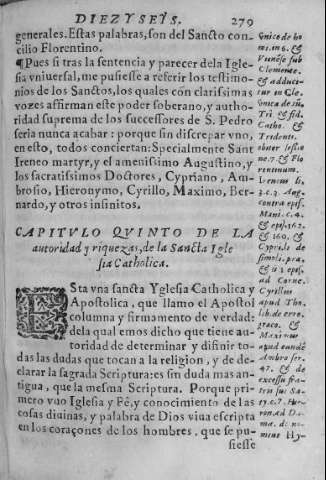 DIEZYSEYS. 279
generales. Estas palabras, son del Sancto con-
cilio Florentino.
¶Pues si tras la sentencia y parecer dela Igle-
sia vniuersal, me pusiesse a referir los testimo-
nios de los Sanctos, los quales con clarissimas
vozes affirman este poder soberano, y autho-
ridad suprema de los successores de S. Pedro
seria nunca acabar: porque sin discrepar vno,
en esto, todos conciertan: Specialmente Sant
Ireneo martyr, y el amenissimo Augustino, y
los sacratissimos Doctores, Cypriano, Am-
brosio, Hieronymo, Cyrillo, Maximo, Ber-
nardo, y otros infinitos.
CAPITVLO QVINTO DE LA
autoridad y riquezas, de la Sancta Igle
sia Catholica.
ESta vna sancta Yglesia Catholica y
Apostolica, que llamo el Apostol
columna y firmamento de verdad:
dela qual emos dicho que tiene au-
toridad de determinar y difinir to-
das las dudas que tocan a la religion, y de de-
clarar la sagrada Scriptura: es sin duda mas an-
tigua, que la mesma Scriptura. Porque pri-
mero vuo Iglesia y Fé, y conocimiento de las
cosas diuinas, y palabra de Dios viua escripta
en los coraçones de los hombres, que se pu-
siesse
Clemente.
&
Catho. &
Trident.
ne. 7. & Flo
rentinum.
3. c. 3. Aug.
contra epis.
Mani. c. 4.
& epis. 162.
& 160. &
Cypri. de
simpli. præ.
& li 3 epis.
ad Corne.
Cyrillus
apud Tho.
lib. de erro.
græco. &
Maximo
apud eundē
Ambro ser.
47. & de
excessu fra-
tris su: Sa-
ty. c. 7. Hie-
ron. ad Da-
ma. d: no-
mine Hy-